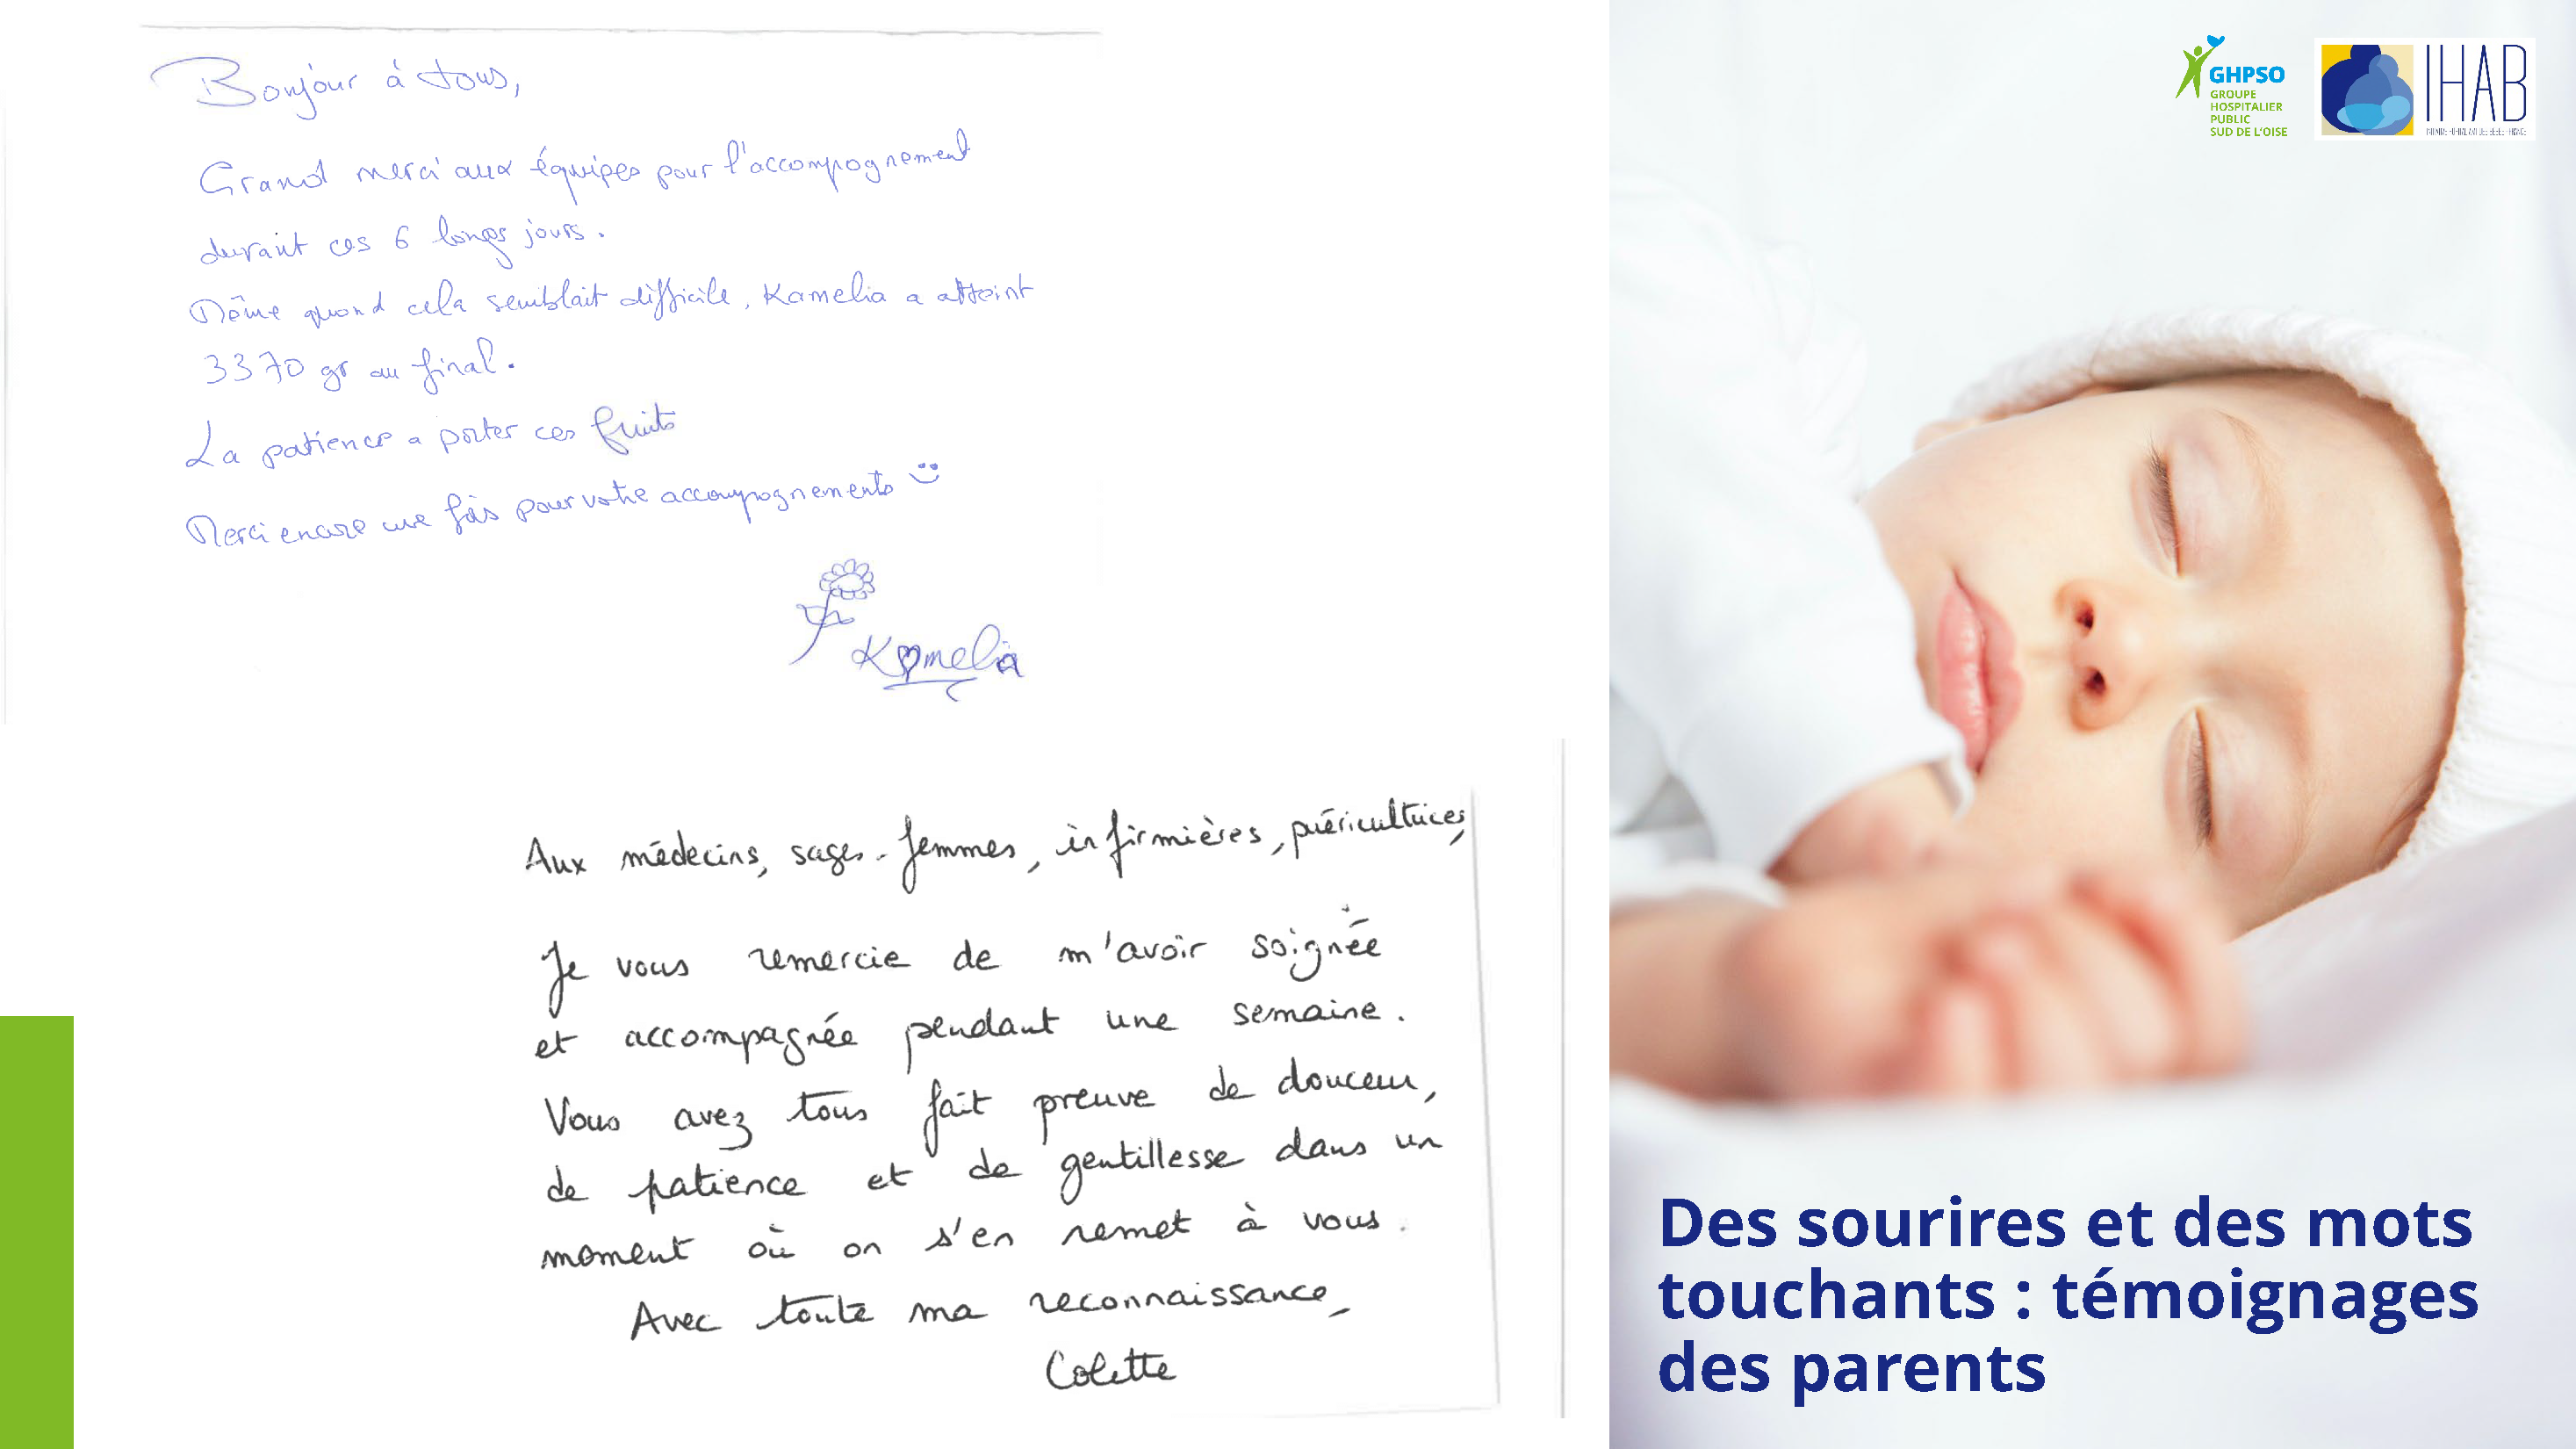 Bonjour à tous,
Grand merci aux équipes pour l'accompagnement
durant ces 6 longs jours.
Même quand cela semblait difficile, Kamelia a atteint
3370 gr au final.
La patience a porter ces fruits
Merci encore une fois pour votre accompagnements
Kamelia
Aux médecins, sages-femmes, infirmières, puéricultrices,
Je vous remercie de m'avoir soignée
et accompagnée pendant une semaine.
Vous avez tous fait preuve de douceur,
de patience et de gentillesse dans un
moment où on s'en remet à vous.
Avec toute ma reconnaissance,
Colette
GHPSO
GROUPE
HOSPITALIER
PUBLIC
SUD DE L'OISE
IHAB
Des sourires et des mots
touchants : témoignages
des parents